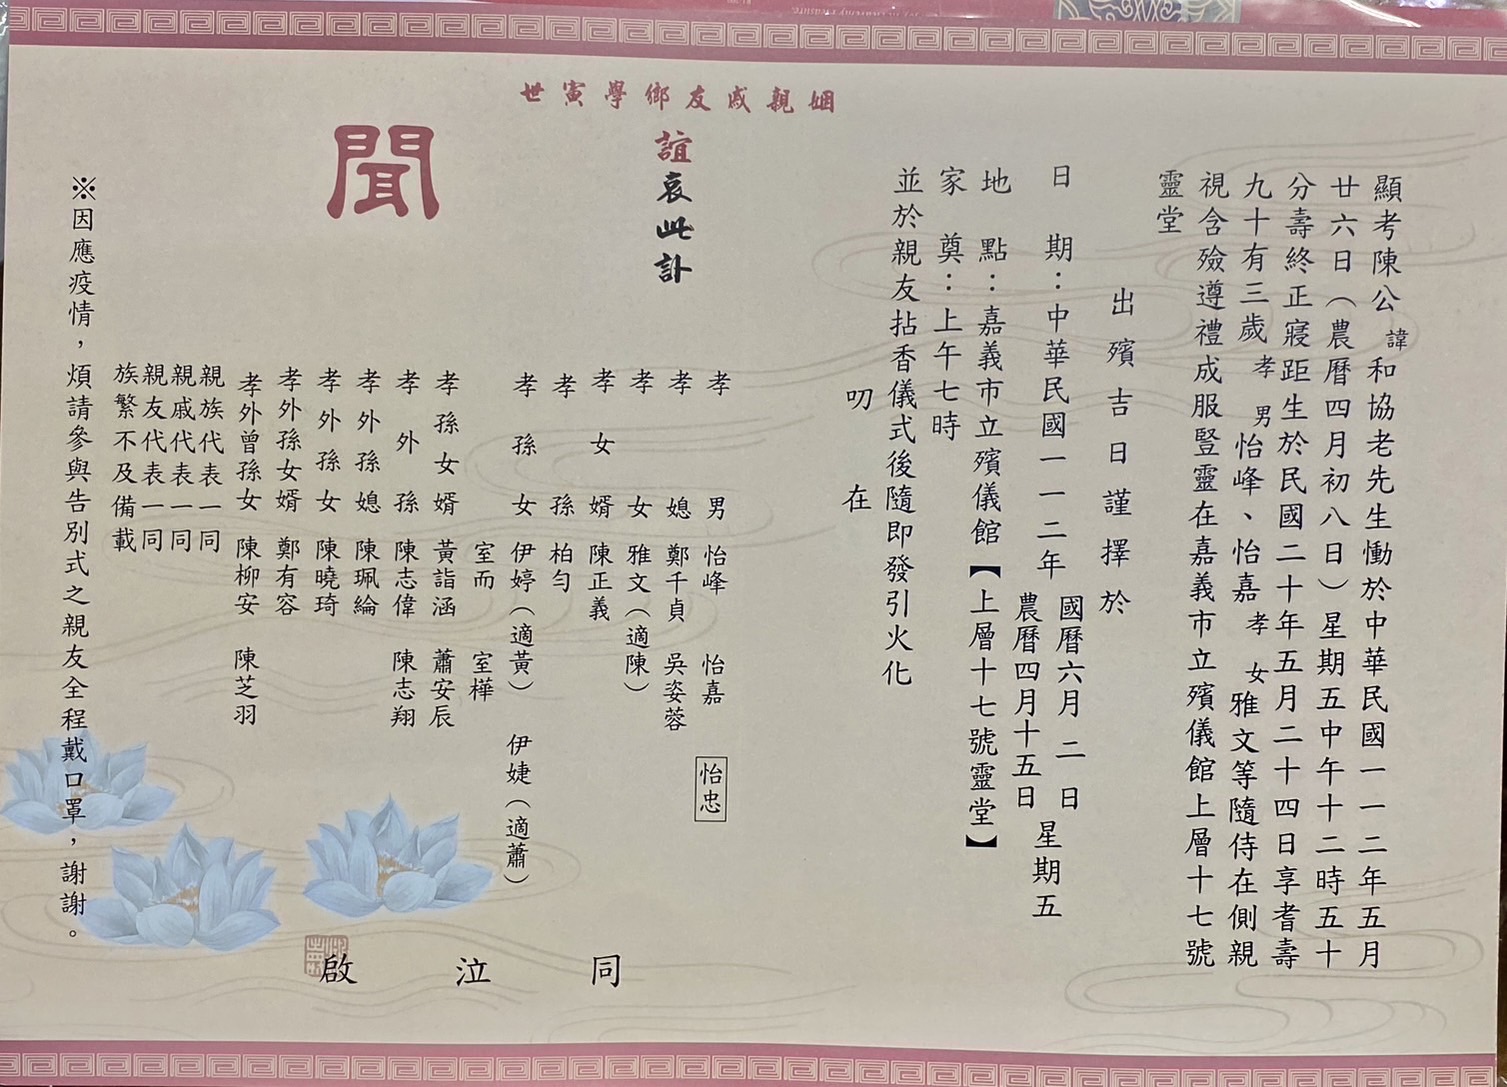 顯考陳公諱和協老先生慟於中華民國一一二年五月
廿六日（農曆四月初八日）星期五中午十二時五十
分壽終正寢距生於民國二十年五月二十四日享耆壽
九十有三歲孝男怡峰、怡嘉孝女雅文等隨侍在側親
視含殮遵禮成服豎靈在嘉義市立殯儀館上層十七號
靈堂
出殯吉日謹擇於
日期：中華民國一一二年國曆六月二日星期五
農曆四月十五日
地點：嘉義市立殯儀館【上層十七號靈堂】
家奠：上午七時
並於親友拈香儀式後隨即發引火化
叨在
姻親戚友鄉學寅世
誼哀此訃
聞
孝男 怡峰 怡嘉 怡忠
孝媳 鄭千貞 吳姿蓉
孝女 雅文（適陳）
孝女婿 陳正義
孝孫 柏勻
孝孫女 伊婷（適黃） 伊婕（適蕭）
室而 室樺
孝孫女婿 黃詣涵 蕭安辰
孝外孫 陳志偉 陳志翔
孝外孫媳 陳珮綸
孝外孫女 陳曉琦
孝外孫女婿 鄭有容
孝外曾孫女 陳柳安 陳芝羽
親族代表一同
親戚代表一同
親友代表一同
族繁不及備載
同泣啟
※因應疫情，煩請參與告別式之親友全程戴口罩，謝謝。